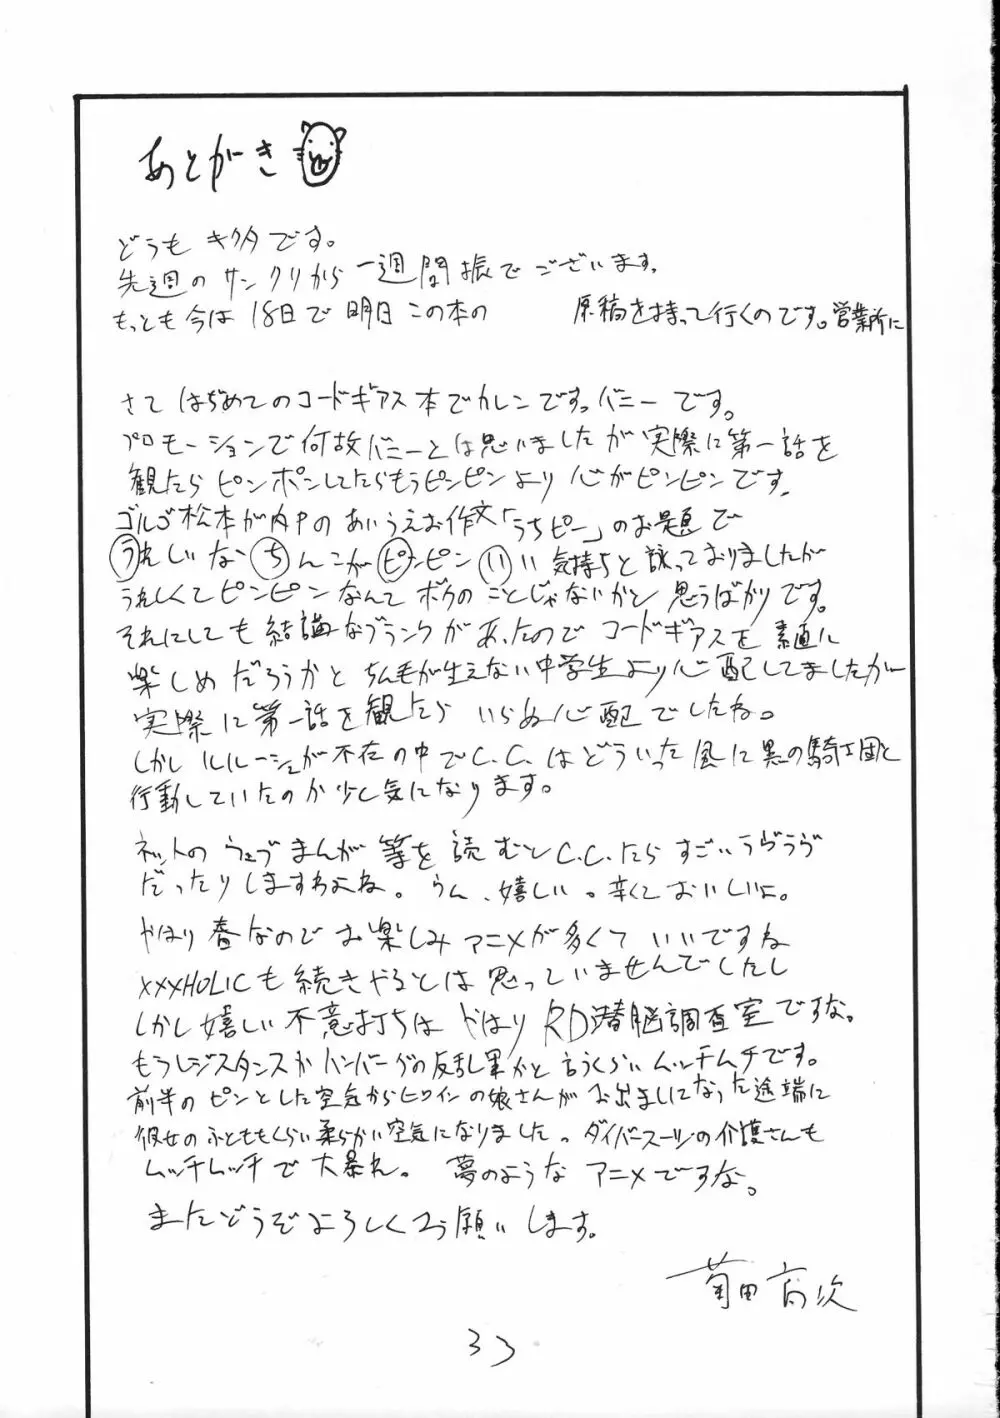 あとがき
どうも キクタです。
先週の サンクリから 一週間振でございます。
もっとも今は 18日で 明日 この本の 原稿を持って行くのです。営業所に
さて はぢめてのコードギアス本でカレンです。バニーです。
プロモーションで何故バニーとは思いましたが実際に第一話を
観たら ピンポンしてたらもうピンピンより 心がピンピンです。
ゴルゴ松本が内Pの あいうえお作文「うちピー」のお題で
うれしいな ちんこが ピンピン いい 気持ちと 詠っておりましたが
うれしくてピンピン なんて ボクの ことじゃないかと 思うばかりです。
それにしても 結構なブランクが あったので コードギアスを 素直に
楽しめ だろうかと ちん毛が生えない中学生より心配してましたが
実際に第一話を観たら いらぬ心配でしたね。
しかし ルルーシュが不在の中でC.C.はどういった風に黒の騎士団と
行動していたのか少し気になります。
ネットの ウェブまんが 等を 読むと C.C.たら すごいラヴラヴ
だったりしますわよね。うん、嬉しい。辛くて おいしいよ。
やはり 春なので お楽しみ アニメが多くて いいですね
XXXHOLICも続きやるとは思っていませんでしたし
しかし嬉しい不意打ちは やはり RD潜脳調査室ですな。
もうレジスタンスか ハンバーグの反乱軍かと言うくらい ムッチムチです。
前半の ピンとした空気からヒロインの娘さんが お出ましになった途端に
彼女のふとももくらい柔らかい空気になりました。ダイバースーツの介護さんも
ムッチムッチで 大暴れ。 夢のような アニメですな。
またどうぞよろしくお願いします。
菊田高次
33